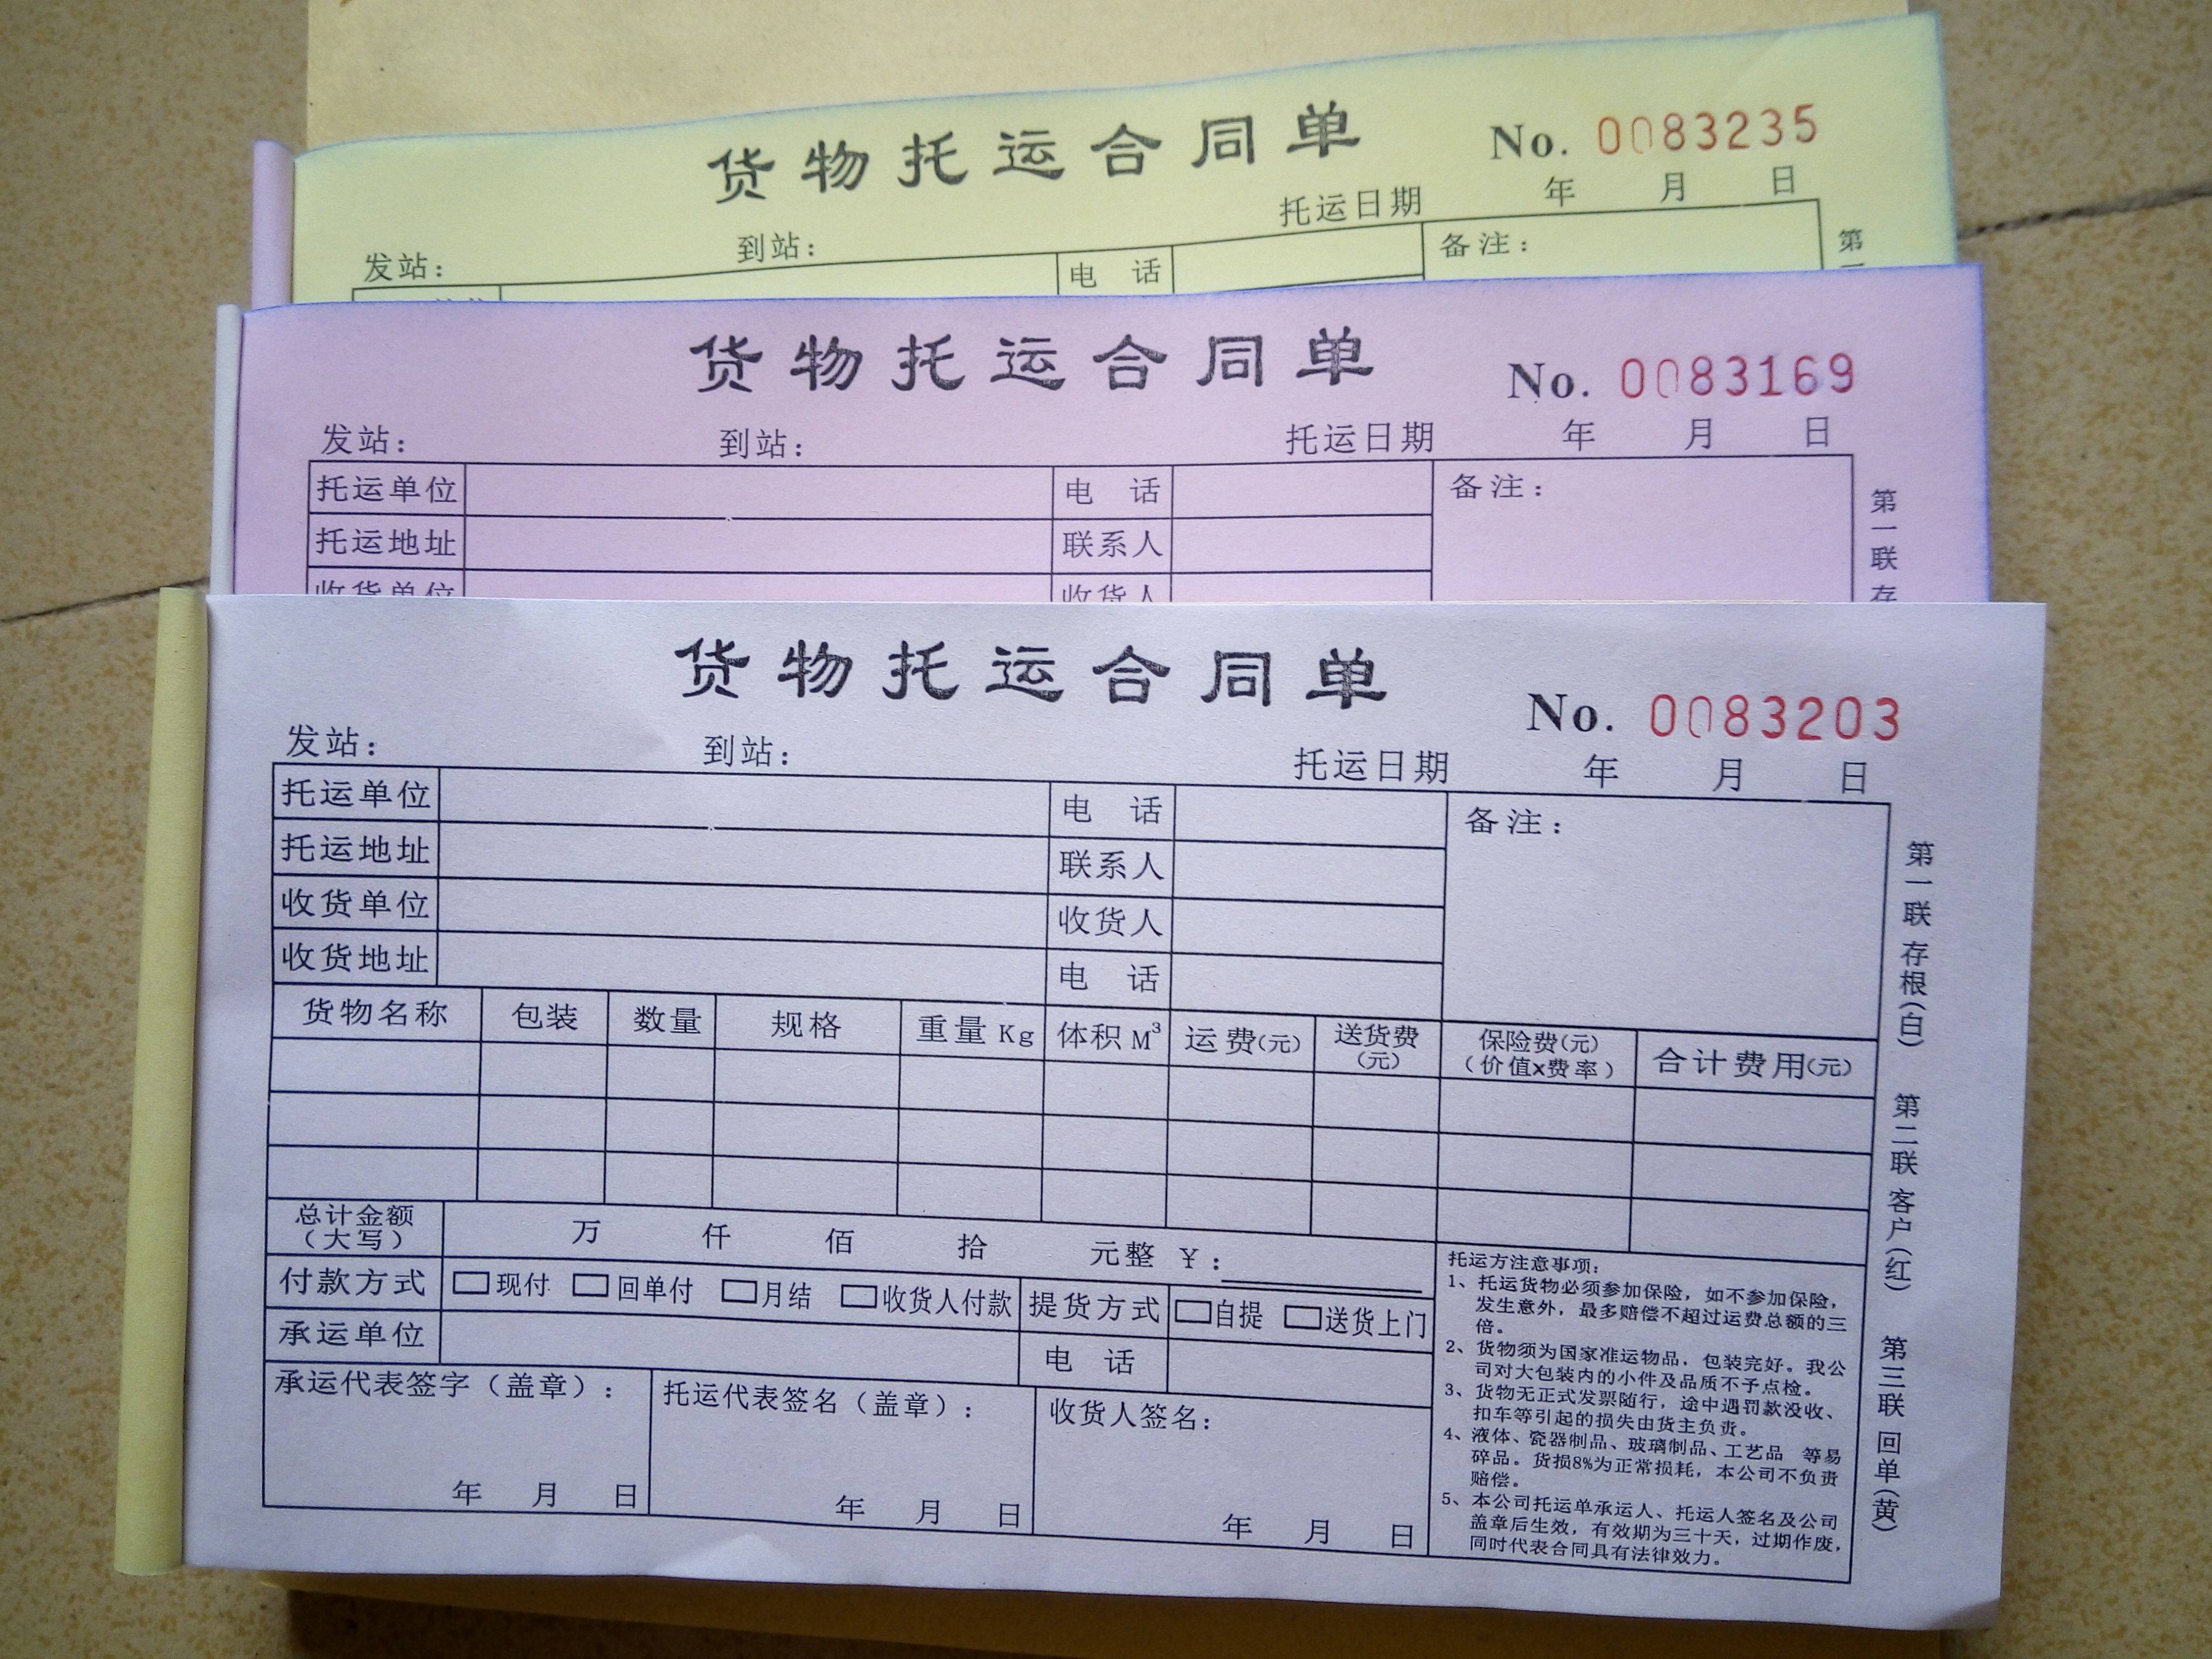 货物托运合同单
No. 0083235
托运日期 年 月 日
发站： 到站：
电 话 备注：
第
货物托运合同单
No. 0083169
发站： 到站： 托运日期 年 月 日
托运单位 电 话 备注：
托运地址 联系人
收货单位 收货人
第一联 存
货物托运合同单
No. 0083203
发站： 到站： 托运日期 年 月 日
托运单位 电 话 备注：
托运地址 联系人
收货单位 收货人
收货地址 电 话
货物名称 包装 数量 规格 重量Kg 体积M³ 运费(元) 送货费(元) 保险费(元)(价值x费率) 合计费用(元)
总计金额(大写) 万 仟 佰 拾 元整 ¥：
付款方式 □现付 □回单付 □月结 □收货人付款 提货方式 □自提 □送货上门
承运单位 电 话
承运代表签字（盖章）： 托运代表签名（盖章）： 收货人签名：
年 月 日 年 月 日 年 月 日
托运方注意事项：
1、托运货物必须参加保险，如不参加保险，
发生意外，最多赔偿不超过运费总额的三
倍。
2、货物须为国家准运物品，包装完好。我公
司对大包装内的小件及品质不予点检。
3、货物无正式发票随行，途中遇罚款没收、
扣车等引起的损失由货主负责。
4、液体、瓷器制品、玻璃制品、工艺品 等易
碎品。货损8%为正常损耗，本公司不负责
赔偿。
5、本公司托运单承运人、托运人签名及公司
盖章后生效，有效期为三十天，过期作废，
同时代表合同具有法律效力。
第一联 存根(白) 第二联 客户(红) 第三联 回单(黄)